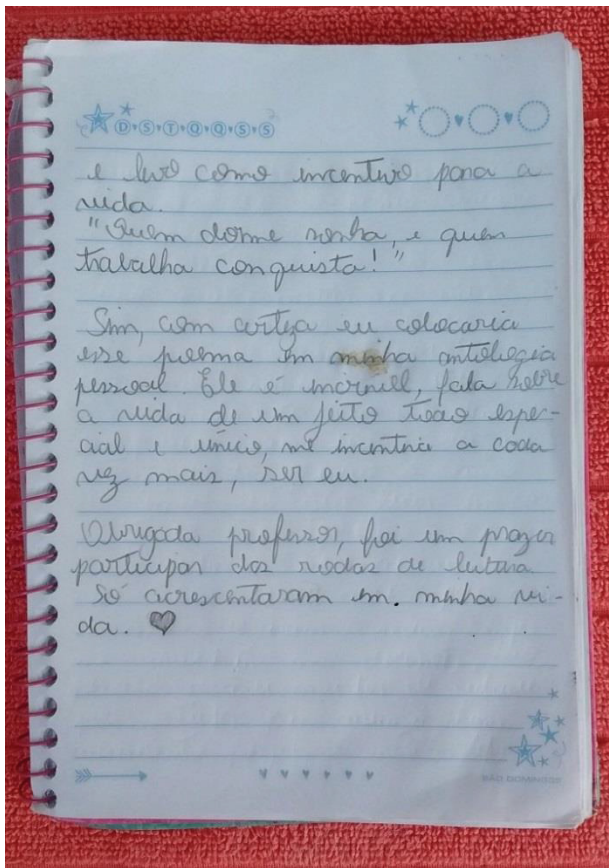 D S T Q Q S S
e levo como incentivo para a
vida.
"Quem dorme sonha, e quem
trabalha conquista!"
Sim, com certeza eu colocaria
esse poema em minha antologia
pessoal. Ele é incrivell, fala sobre
a vida de um jeito tão espe-
cial e único, me incentiva a cada
vez mais, ser eu.
Obrigada professor, foi um prazer
participar das rodas de leitura.
Só acrescentaram em. minha vi-
da.